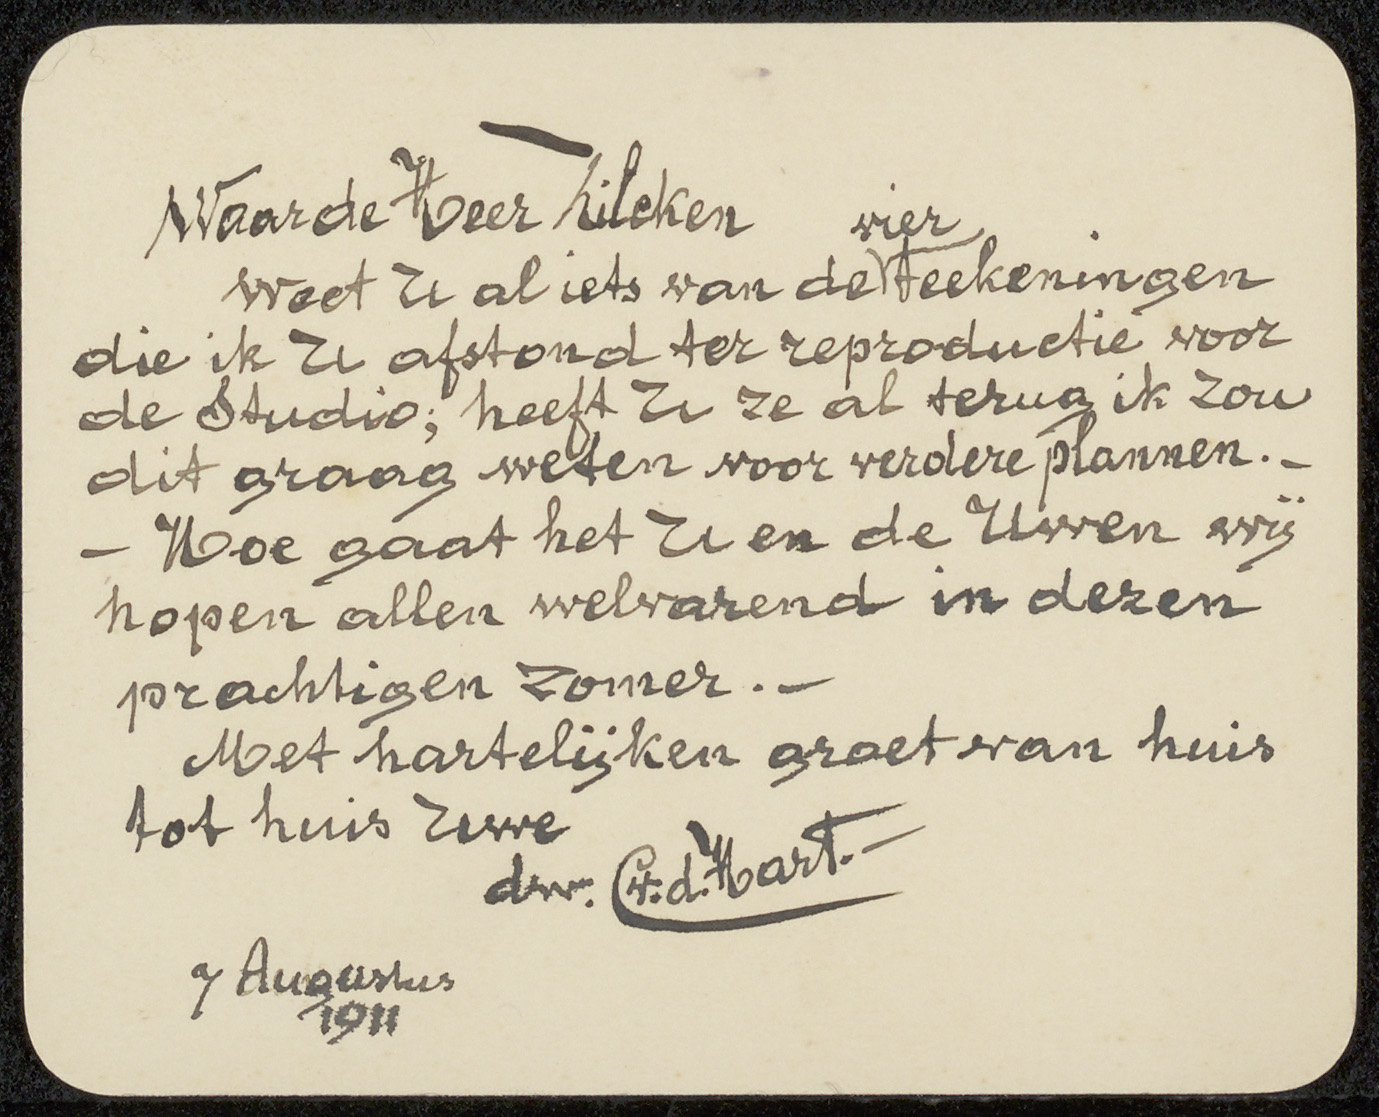 Waarde Heer Zilcken
vier
weet U al iets van de teekeningen
die ik U afstond ter reproductie voor
de Studio; heeft U ze al terug ik zou
dit graag weten voor verdere plannen.-
- Hoe gaat het U en de Uwen wij
hopen allen welvarend in dezen
prachtigen zomer.-
Met hartelijken groet van huis
tot huis Uwe
dw. C.v.d.Hart.-
7 Augustus
1911